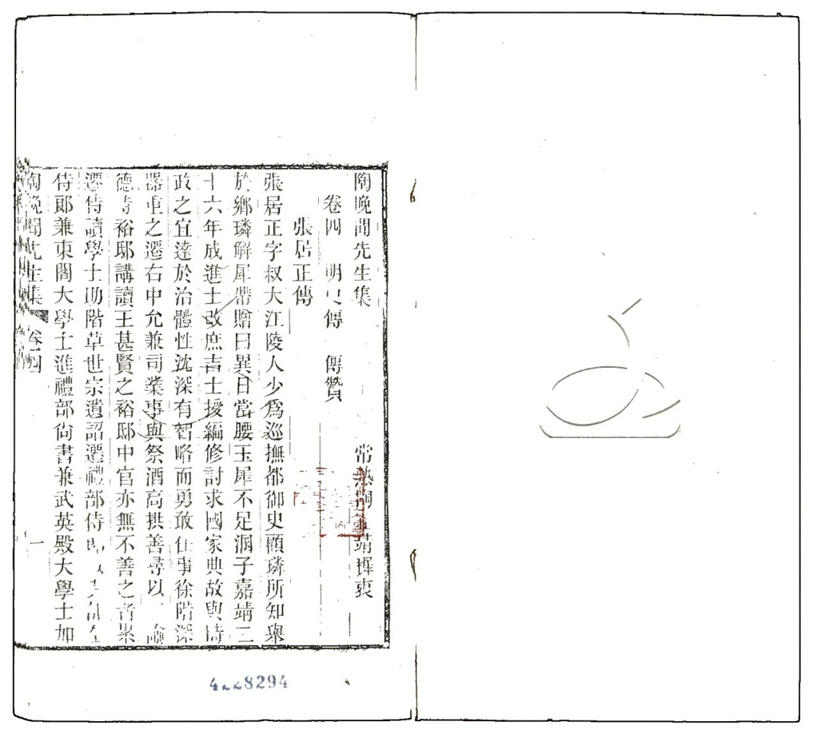 陶晚聞先生集 常熟 靖撰
卷四 明史傳 傳贊
張居正傳
張居正字叔大江陵人少爲巡撫都御史顧璘所知舉
於鄉璘解犀帶贈曰異日當腰玉犀不足溷子嘉靖二
十六年成進士改庶吉士授編修討求國家典故與時
政之宜達於治體性沈深有智略而勇敢任事徐階深
器重之遷右中允兼司業事與祭酒高拱善尋以 諭
德侍裕邸講讀王甚賢之裕邸中官亦無不善之者累
遷侍讀學士助階草世宗遺詔遷禮部侍
侍郎兼東閣大學士進禮部尚書兼武英殿大學士加
陶晚聞先生集 卷四 一
4228294